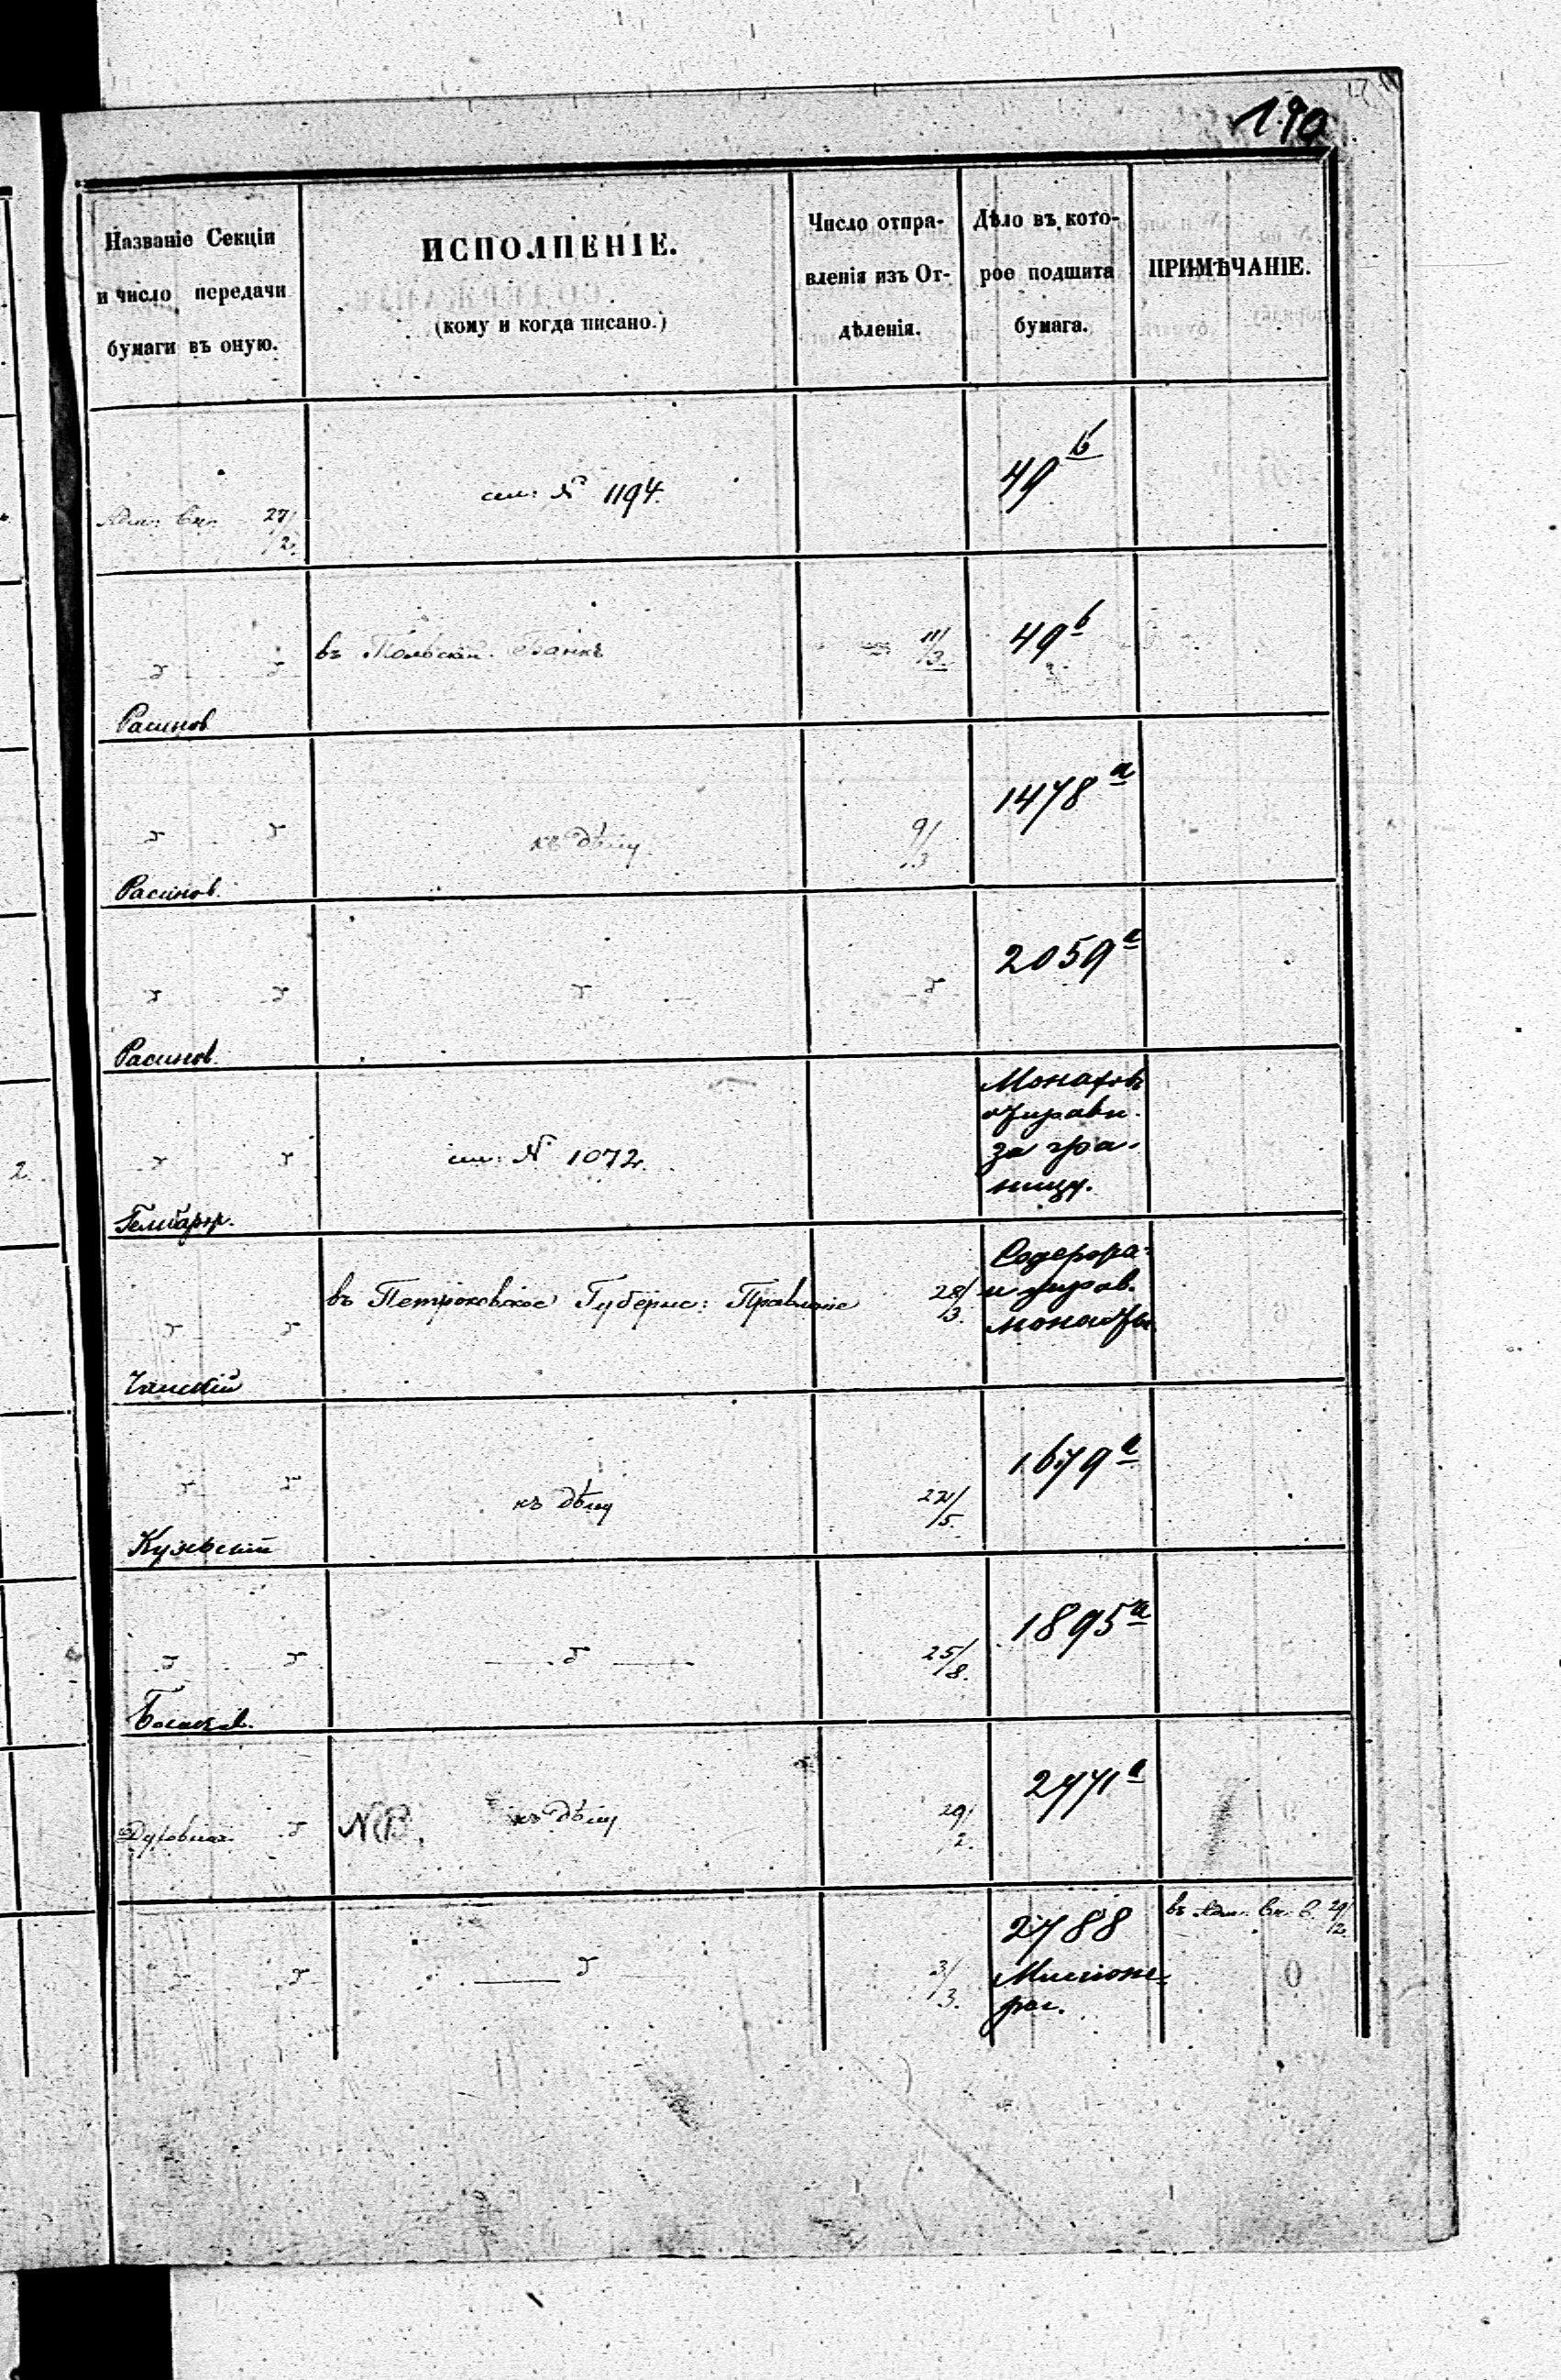 190
Названіе Секціи
и число передачи
бумаги въ оную.
ИСПОЛНЕНІЕ.
(кому и когда писано.)
Число отпра-
вленія изъ От-
дѣленія.
Дѣло въ кото-
рое подшита
бумага.
ПРИМѢЧАНІЕ.
Адм: 27/2.
см: № 1194.
49 b
въ Польскій Банкъ
11/3.
49 b
Расинов
къ дѣлу
9/3
1478 a
Расинов.
2059 a
Расинов.
см: № 1072.
Монаховъ
отправл.
за гра-
ницу.
въ Петроковское Губернс: Правленіе
28/3.
Чанскій
къ дѣлу
22/5.
1679 a
Куявскій
25/8.
1895 a
Духовная
NB.
къ дѣлу
29/2.
2771 a
3/3.
2788
Миссионе-
ры.
въ Адм. 29/2